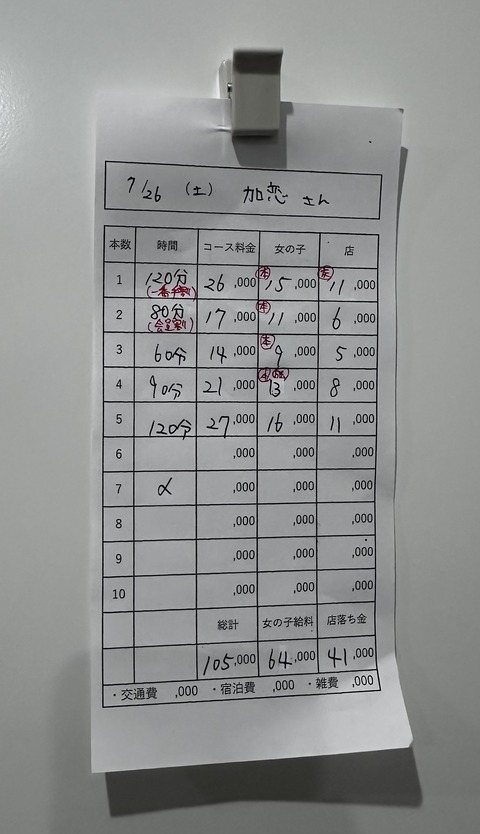 7/26 (土) 加恋 さん
本数 時間 コース料金 女の子 店
1 120分 26 ,000 本 15 ,000 11 ,000
2 80分 17 ,000 本 11 ,000 6 ,000
3 60分 14 ,000 本 9 ,000 5 ,000
4 90分 21 ,000 13 ,000 8 ,000
5 120分 27 ,000 16 ,000 11 ,000
6 ,000 ,000 ,000
7 ,000 ,000 ,000
8 ,000 ,000 ,000
9 ,000 ,000 ,000
10 ,000 ,000 ,000
総計 女の子給料 店落ち金
105 ,000 64 ,000 41 ,000
・交通費 ,000 ・宿泊費 ,000 ・雑費 ,000